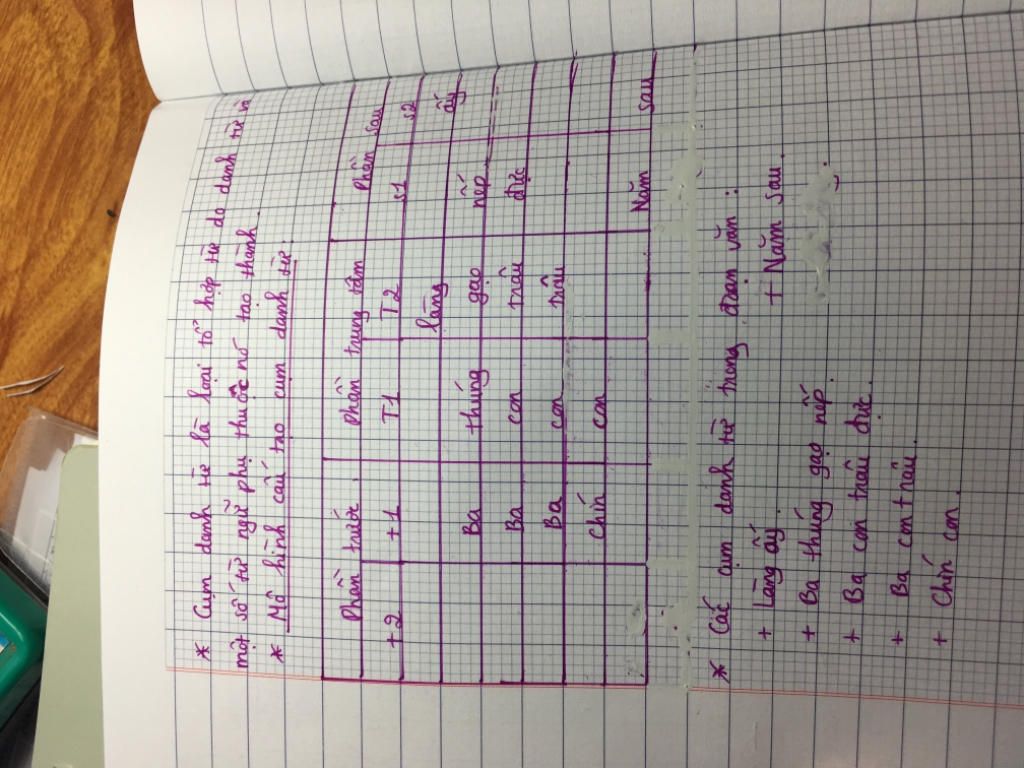 * Cụm danh từ là loại tổ hợp từ do danh từ và
một số từ ngữ phụ thuộc nó tạo thành.
* Mô hình cấu tạo cụm danh từ:
Phần trước Phần trung tâm Phần sau
t2 t1 T1 T2 s1 s2
làng ấy
Ba thúng gạo nếp
Ba con trâu đực
Ba con trâu
Chín con
Năm sau
* Các cụm danh từ trong đoạn văn:
+ Làng ấy. + Năm sau.
+ Ba thúng gạo nếp.
+ Ba con trâu đực.
+ Ba con trâu.
+ Chín con.